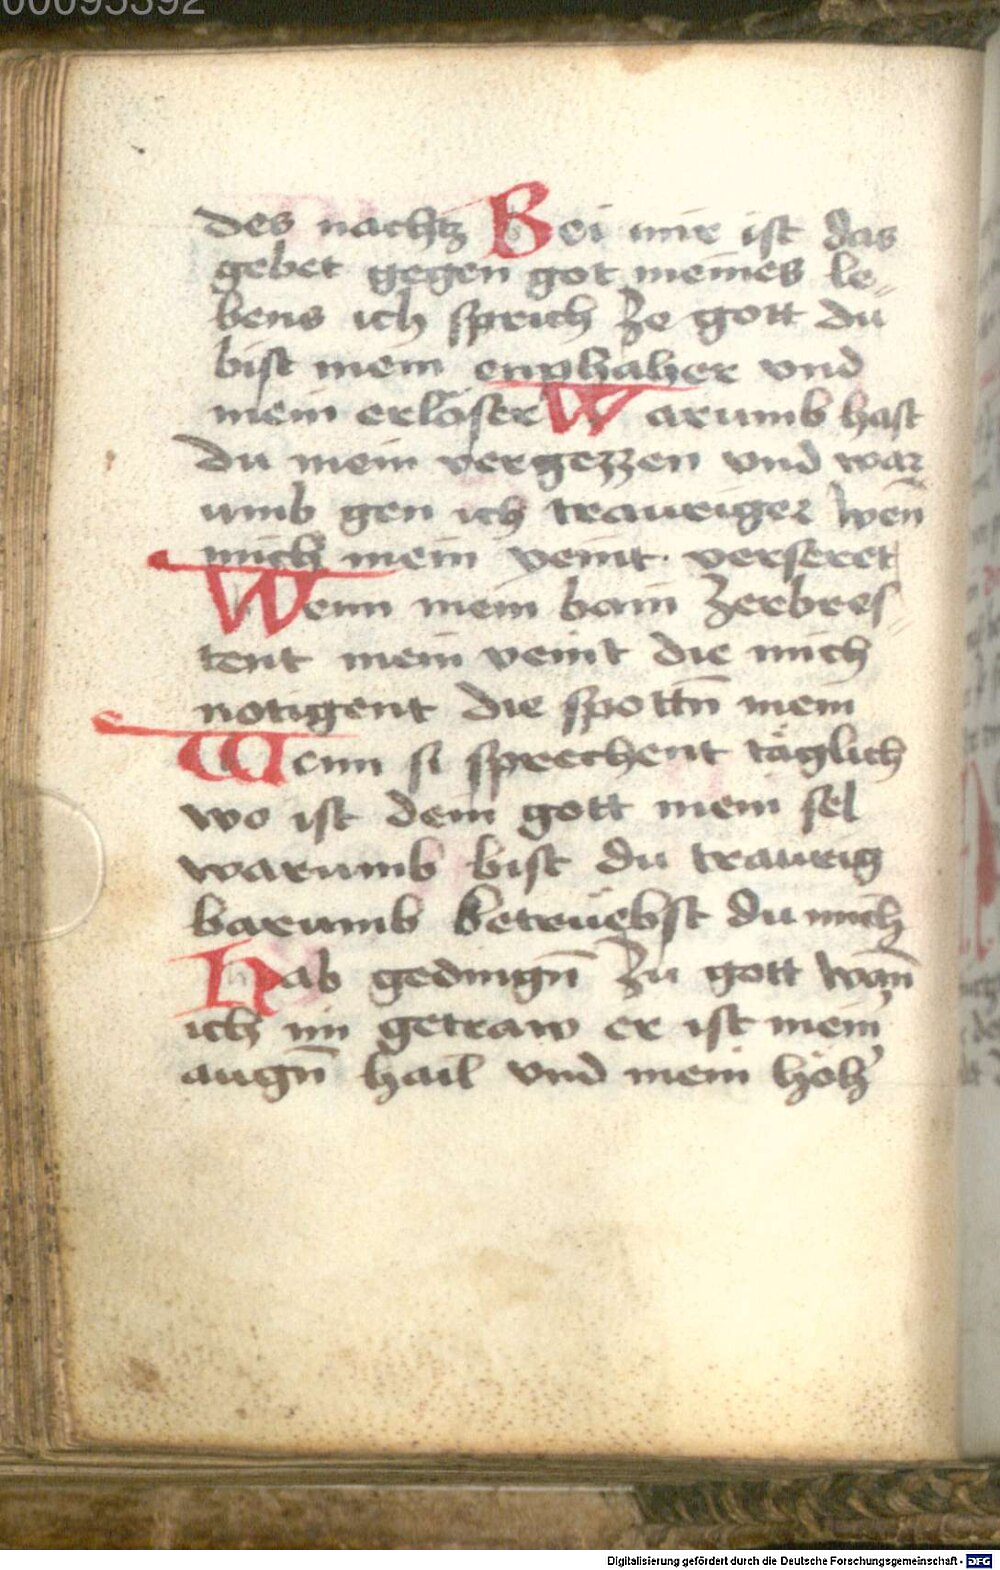 00095392
des nachtz Bei mir ist das
gebet gegen got meines le-
bens ich sprich ze gott du
bist mein enphaher vnd
mein erlöser Warumb hast
du mein vergezzen vnd war
umb gen ich trauriger wen̄
mich mein veint verseret
Wenn mein bain zerbres-
tent mein veint die mich
notigent die spottn̄ mein
Wenn si sprechent täglich
wo ist dein gott mein sel
warumb bist du traurig
barumb betrüebst du mich
Hab gedingn̄ zu gott wan̄
ich im getraw er ist mein
augn̄ hail vnd mein
Digitalisierung gefördert durch die Deutsche Forschungsgemeinschaft - DFG